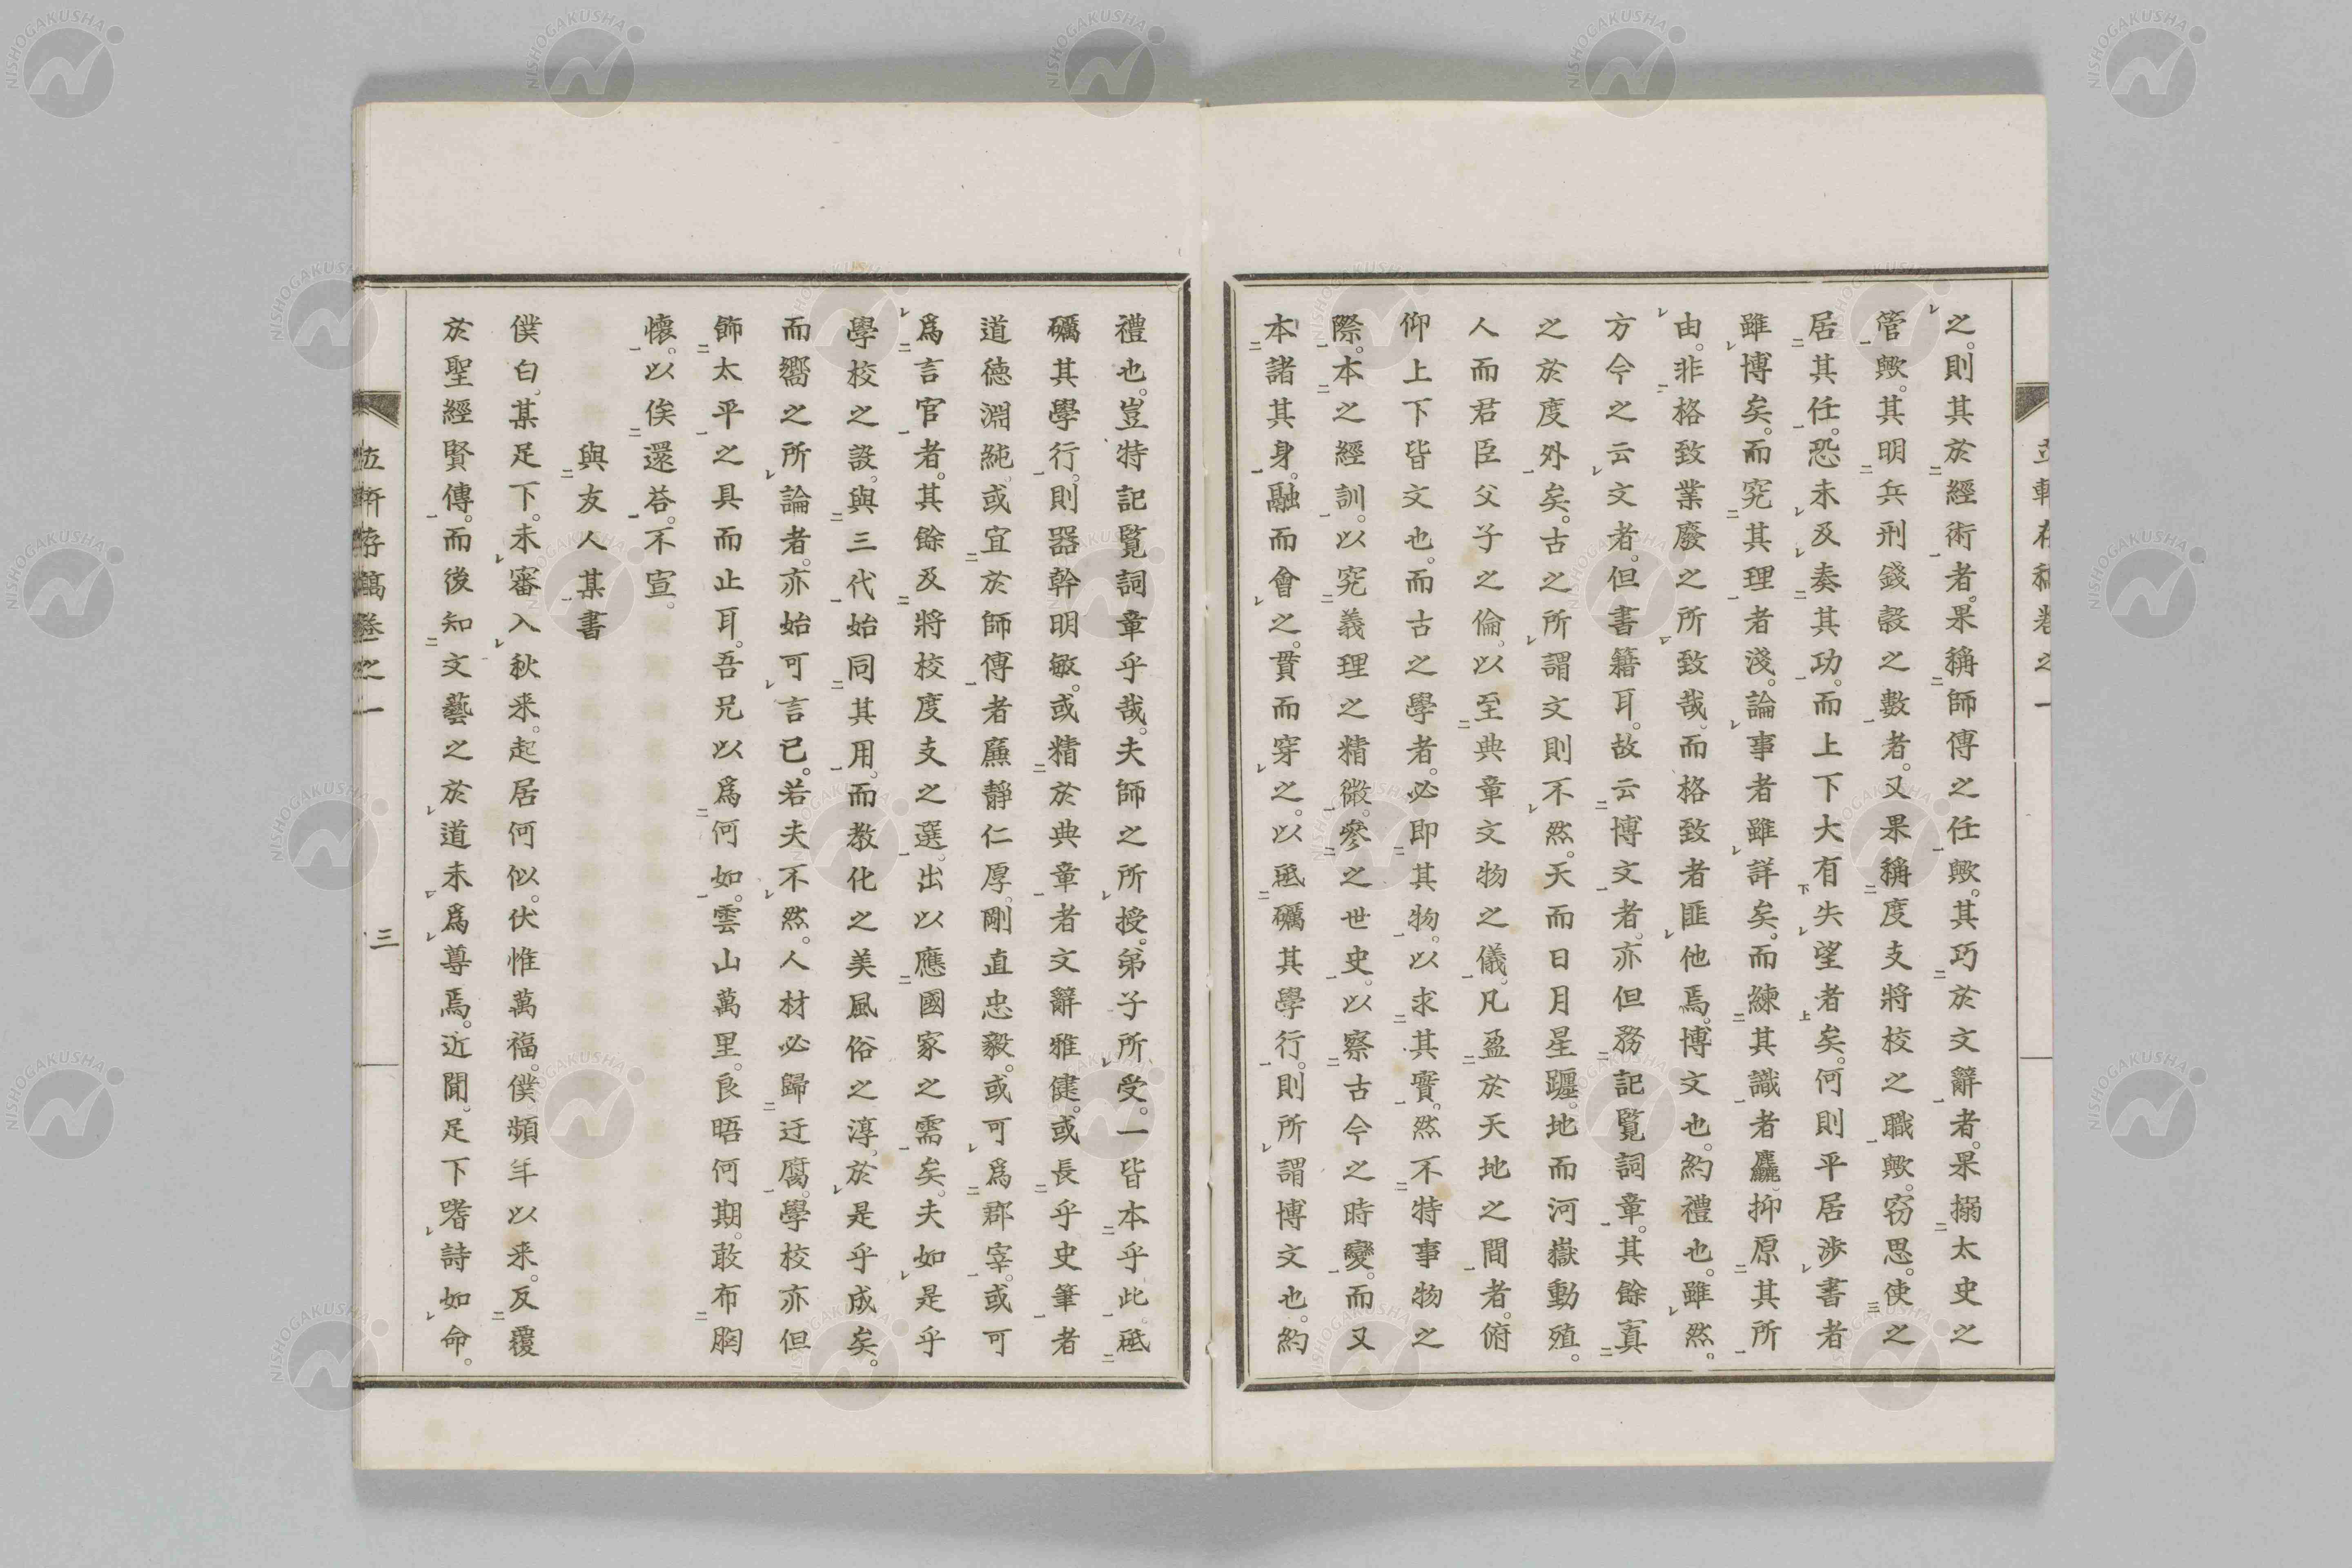 之。則其於經術者。果稱師傳之任歟。其巧於文辭者。果搦太史之
管歟。其明兵刑錢穀之數者。又果稱度支將校之職歟。窃思。使之
居其任。恐未及奏其功。而上下大有失望者矣。何則平居渉書者
雖博矣。而究其理者淺。論事者雖詳矣。而練其識者麤。抑原其所
由。非格致業廢之所致哉。而格致者匪他焉。博文也。約禮也。雖然。
方今之云文者。但書籍耳。故云博文者。亦但務記覽詞章。其餘寘
之於度外矣。古之所謂文則不然。天而日月星躔。地而河嶽動殖。
人而君臣父子之倫。以至典章文物之儀。凡盈於天地之間者。俯
仰上下皆文也。而古之學者。必即其物。以求其實。然不特事物之
際。本之經訓。以究義理之精微。參之世史。以察古今之時變。而又
本諸其身。融而會之。貫而穿之。以砥礪其學行。則所謂博文也。約
禮也。豈特記覽詞章乎哉。夫師之所授。弟子所受。一皆本乎此。砥
礪其學行。則器幹明敏。或精於典章者文辭雅健。或長乎史筆者
道德淵純。或宜於師傳者廉靜仁厚。剛直忠毅。或可爲郡宰。或可
爲言官者。其餘及將校度支之選。出以應國家之需矣。夫如是乎
學校之設。與三代始同其用。而教化之美風俗之淳。於是乎成矣。
而嚮之所論者。亦始可言已。若夫不然。人材必歸迂腐。學校亦但
飾太平之具而止耳。吾兄以爲何如。雲山萬里。良晤何期。敢布胸
懷。以俟還荅。不宣。
與友人某書
僕白。某足下。未審入秋来。起居何似。伏惟萬福。僕頻年以来。反覆
於聖經賢傳。而後知文藝之於道未爲尊焉。近聞。足下嗜詩如命。
三
NISHOGAKUSHA